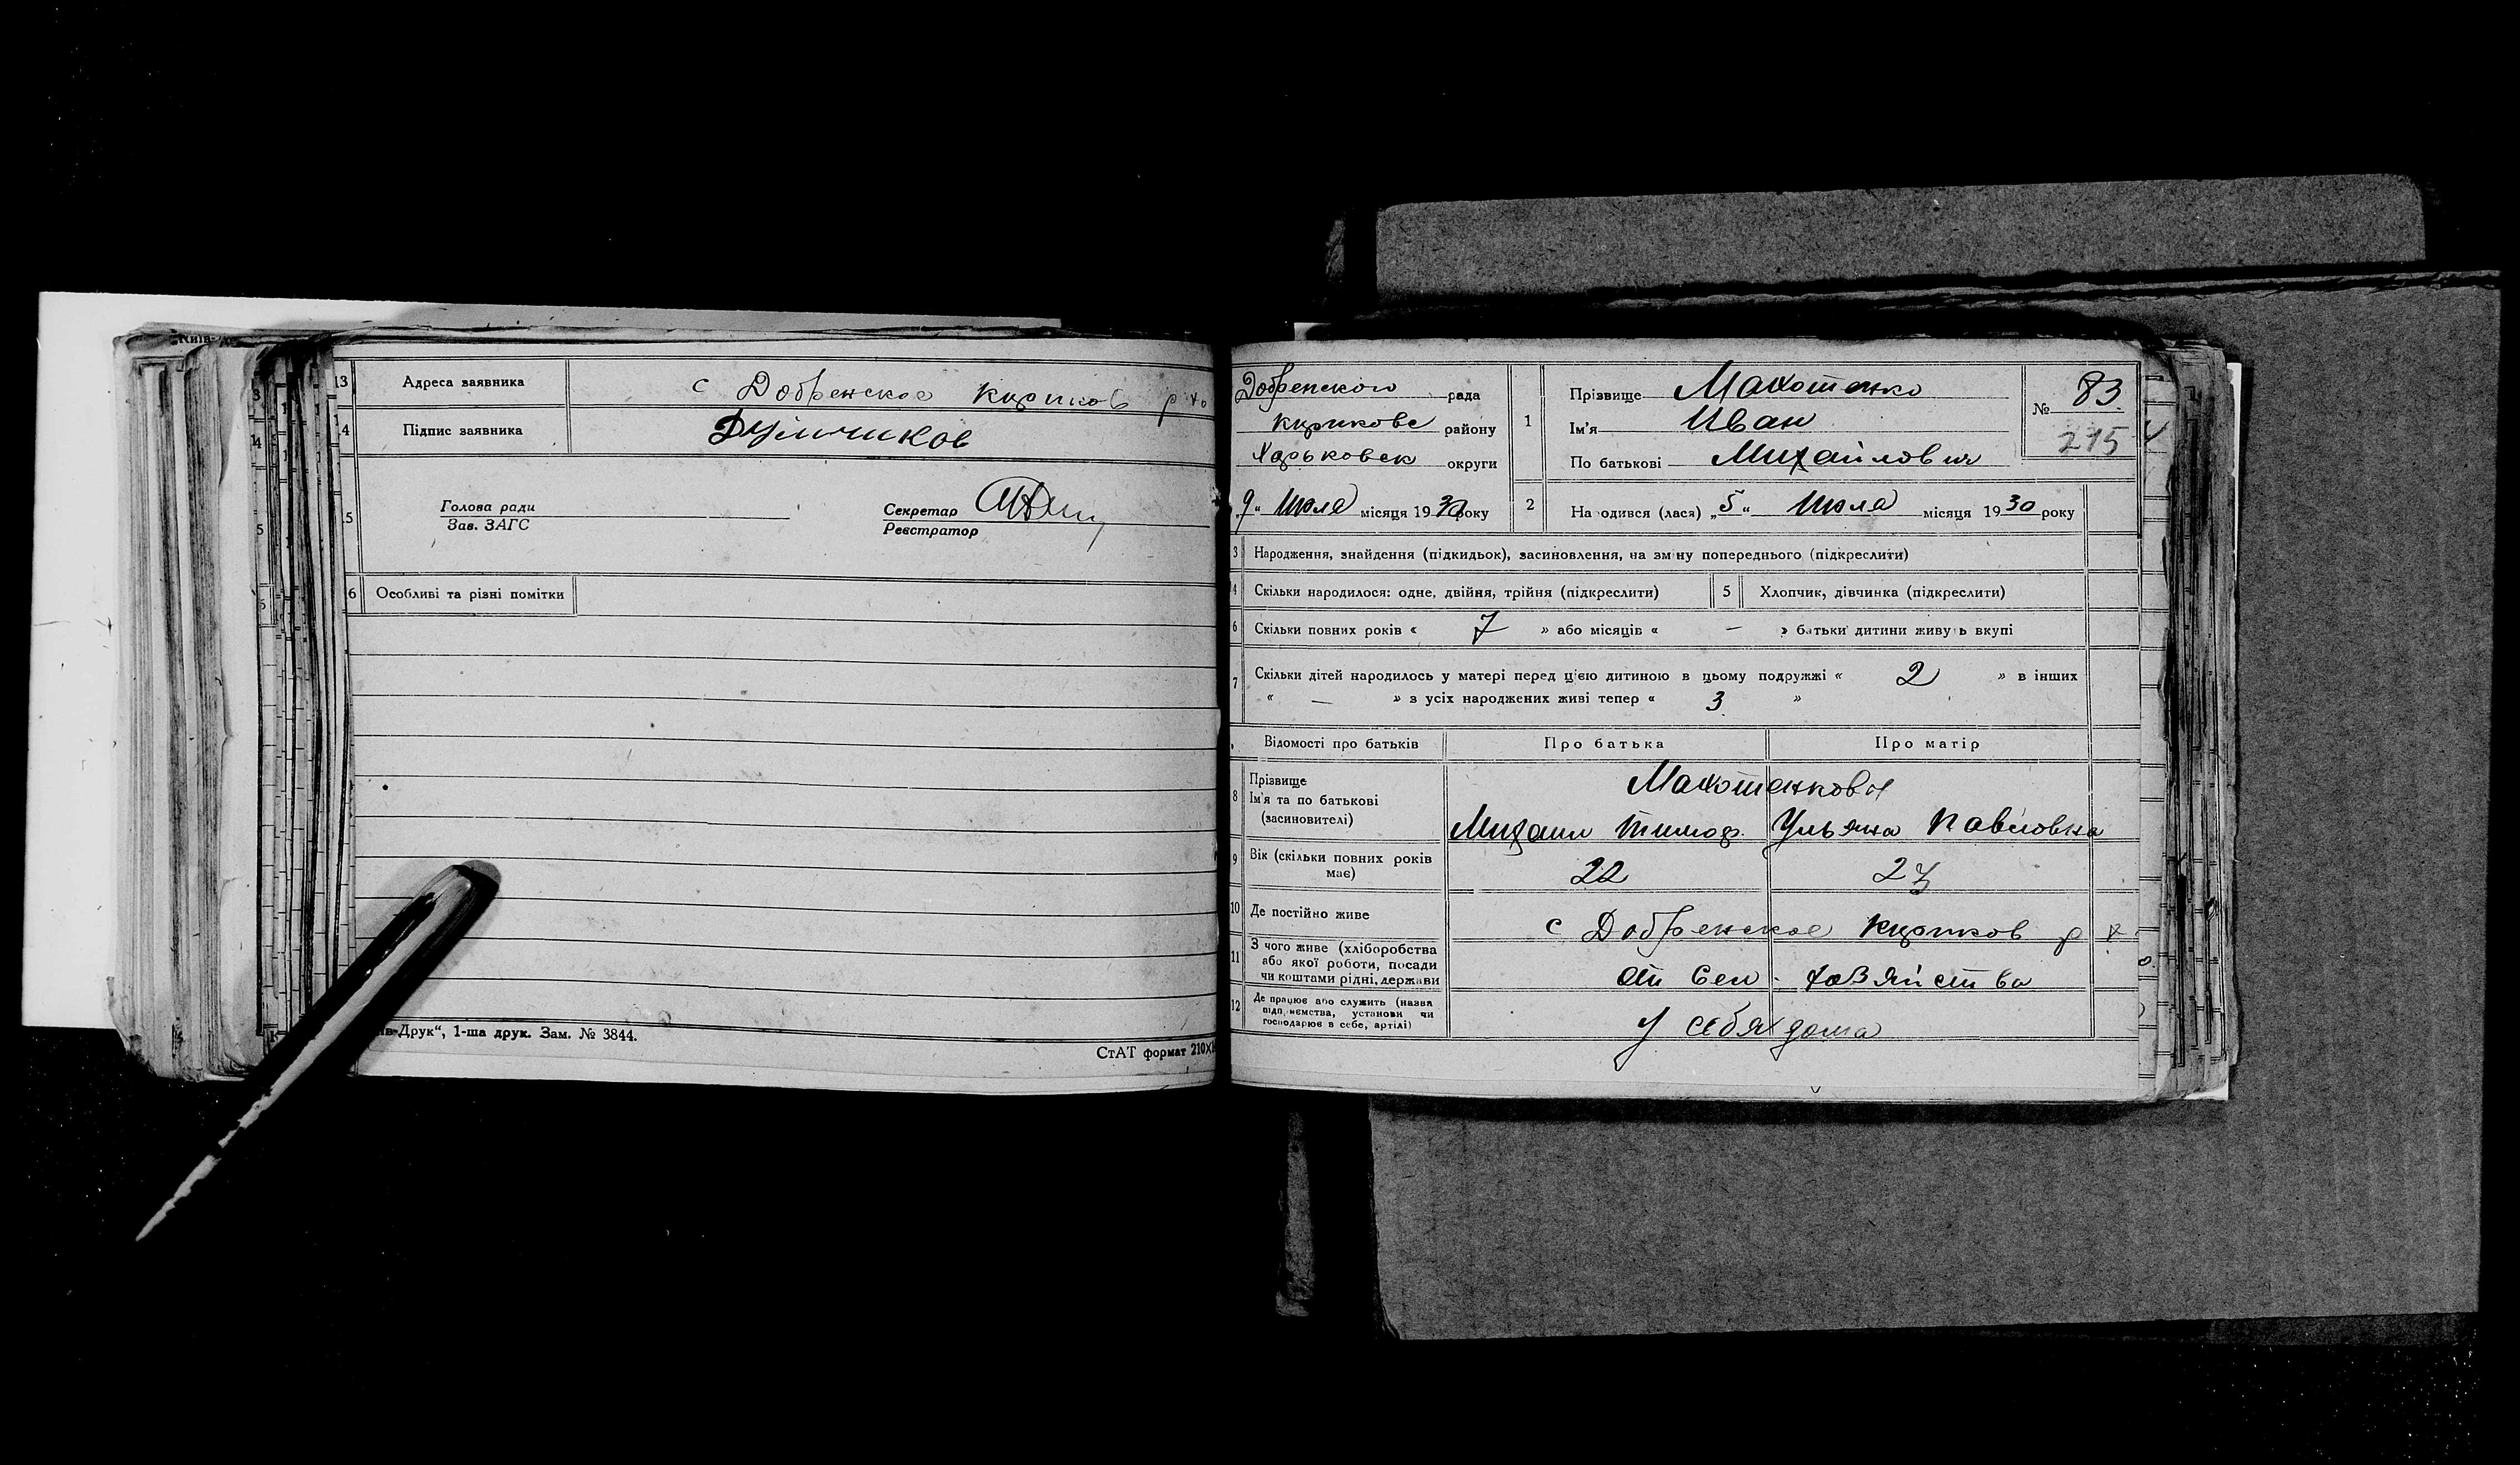 13 Адреса заявника с Добренское Кириков р Хо
14 Підпис заявника
Голова ради
Зав. ЗАГС
Секретар
Реєстратор
15
16 Особливі та різні помітки
Друк“, 1-ша друк. Зам. № 3844.
СтАТ формат 210Х
Добренского рада
Кирикове району
Харьковск округи
„9“ Июля місяця 1930 року
1 Прізвище Махотенко
Ім'я Иван
По батькові Михайлович
№ 83
215
2 На одився (лася) „5“ Июля місяця 1930 року
3 Народження, знайдення (підкидьок), засиновлення, на зміну попереднього (підкреслити)
4 Скільки народилося: одне, двійня, трійня (підкреслити) 5 Хлопчик, дівчинка (підкреслити)
6 Скільки повних років « 7 » або місяців « — » батьки дитини живуть вкупі
7 Скільки дітей народилось у матері перед цією дитиною в цьому подружжі « 2 » в інших
« — » з усіх народжених живі тепер « 3 »
Відомості про батьків Про батька Про матір
8 Прізвище
Ім'я та по батькові
(засиновителі)
Махотенковы
Михаил Тимоф. Ульяна Павловна
9 Вік (скільки повних років
має)
22 23
10 Де постійно живе с Добренское Кириков р Х
11 З чого живе (хліборобства
або якої роботи, посади
чи коштами рідні, держави
от сел. хозяйства
12 Де працює або служить (назва
підприємства, установи чи
господарює в себе, артілі)
у себя дома